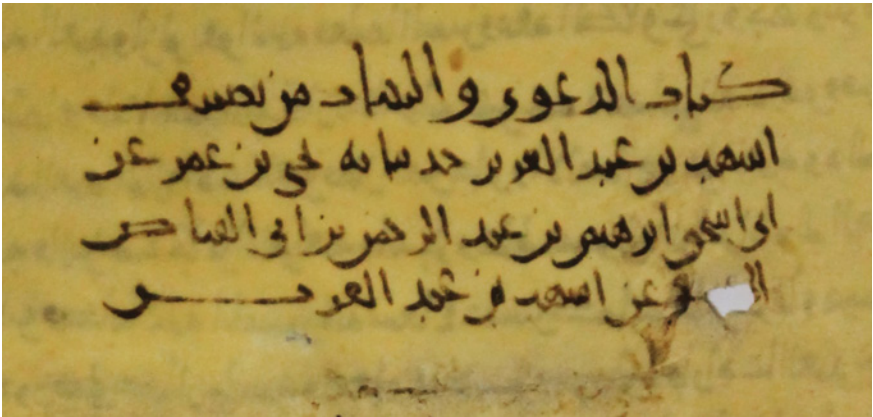 كتاب الدعوى والبينات من تصنيف
اشهب بن عبد العزيز حدثنا به يحيى بن عمر عن
ابى اسحق ابرهيم بن عبد الرحمن بن ابى
عن اشهب بن عبد العزيز